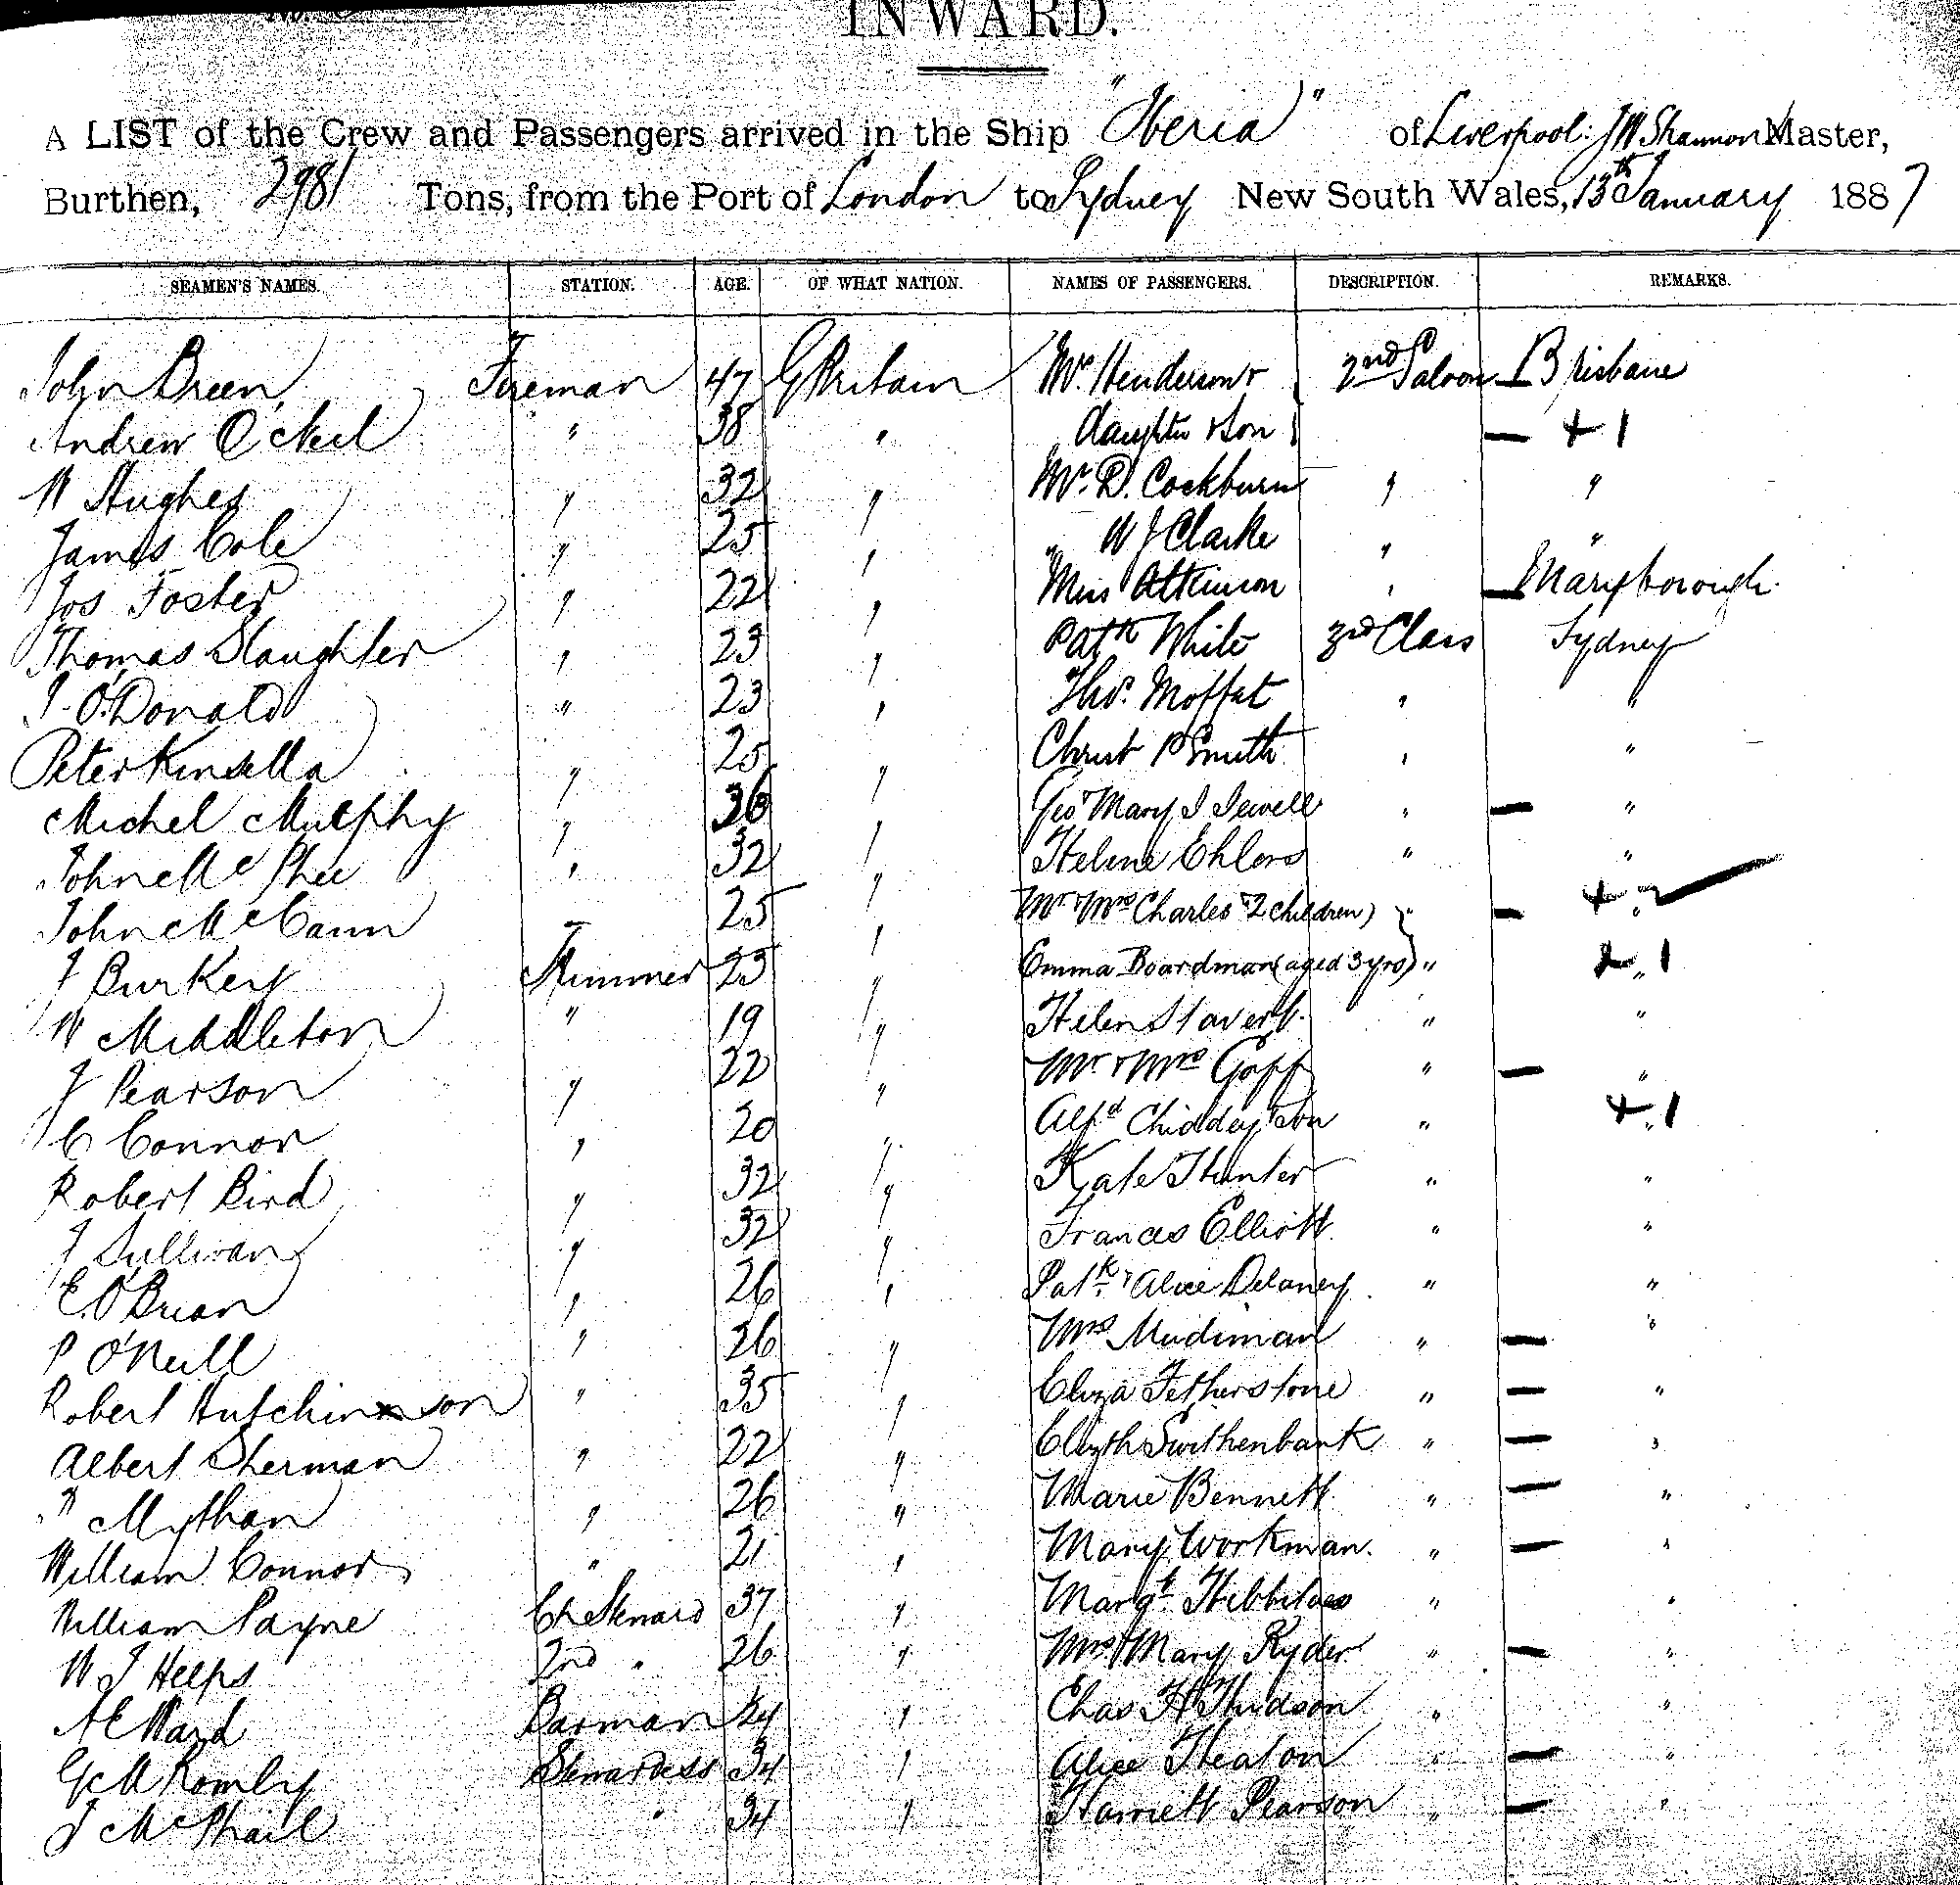 INWARD.
A LIST of the Crew and Passengers arrived in the Ship "Iberia" of Liverpool: J W Shannon Master,
Burthen, 2981 Tons, from the Port of London to Sydney New South Wales, 13th January 1887
SEAMEN'S NAMES. STATION. AGE. OF WHAT NATION. NAMES OF PASSENGERS. DESCRIPTION. REMARKS.
John Breen Fireman 47 G Britain Mrs Henderson & 2nd Saloon Brisbane
Andrew O'Neil " 38 " daughter & Son — + 1
W Hughes " 32 " Mr. D. Cockburn " "
James Cole " 25 " " W J Clarke " "
Jos Foster " 22 " Miss Atkinson " — Maryborough.
Thomas Slaughter " 23 " Patk White 3rd Class Sydney
J. O'Donald " 23 " Thos. Moffat " "
Peter Kinsella " 25 " Christ P Smith " "
Michel Murphy " 36 " Geo & Mary J Sewell " — "
John McPhee " 32 " Helene Ehlers " "
John McCann " 25 " Mr & Mrs Charles & 2 children " — + 2 "
J Burkey Trimmer 23 " Emma Boardman (aged 3 yrs) " 2 1 "
W Middleton " 19 " Helen Stavert. " "
J Pearson " 22 " Mr. & Mrs Goff " — "
C Connor " 20 " Alfd Chiddey & Son " + 1 "
Robert Bird " 32 " Kate Hunter " "
J Sullivan " 32 " Frances Elliott. " "
E. O'Brian " 26 " Patk. & Alice Delaney " "
P O'Neill " 26 " Mrs Mudiman " — "
Robert Hutchinson " 35 " Eliza Fetherstone " — "
Albert Sherman " 22 " Elizth Swithenbank " — "
Mythan " 26 " Marie Bennett " — "
William Connor " 21 " Mary Workman. " — "
William Payne Ch Steward 37 " Margt. " "
W J Helps 2nd " 26 " Mrs Mary Ryder " — "
A E Ward Barman 24 " Chas H Hudson " "
G M Romly Stewardess 34 " Alice Heaton " — "
J McPhail " 34 " Harriett Pearson " — "